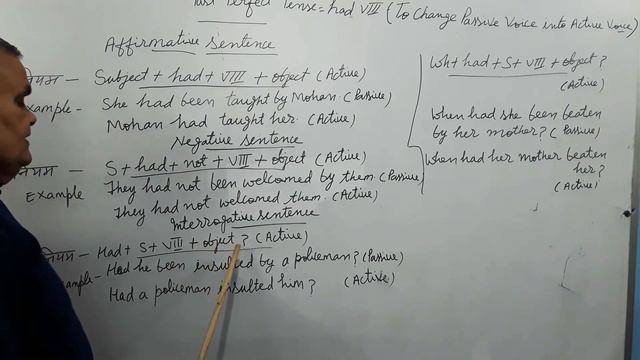 Past Perfect Tense = had VIII (To Change Passive Voice into Active Voice)
Affirmative sentence
नियम - Subject + had + VIII + object (Active)
Example - She had been taught by Mohan. (Passive)
Mohan had taught her. (Active)
Negative sentence
नियम - S + had + not + VIII + object (Active)
Example They had not been welcomed by them. (Passive)
They had not welcomed them. (Active)
Interrogative sentence
नियम - Had + S + VIII + object ? (Active)
Example - Had he been insulted by a policeman? (Passive)
Had a policeman insulted him? (Active)
Wh + had + S + VIII + object ?
(Active)
When had she been beaten
by her mother? (Passive)
When had her mother beaten
her?
(Active)